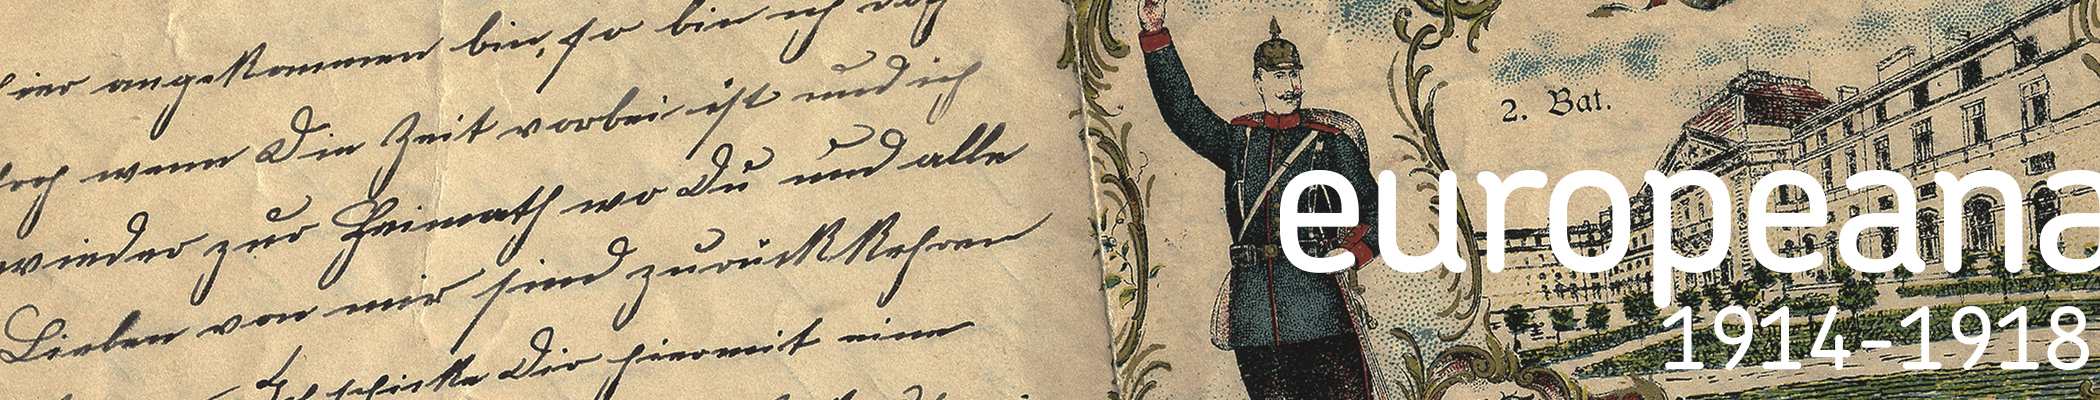 hier angekommen bin, so bin ich doch
doch wenn Die Zeit vorbei ist und ich
wieder zur Heimath wo Du und alle
Lieben von mir sind zurückkehren
Ich schicke Dir hiermit eine
2. Bat.
europeana
1914-1918